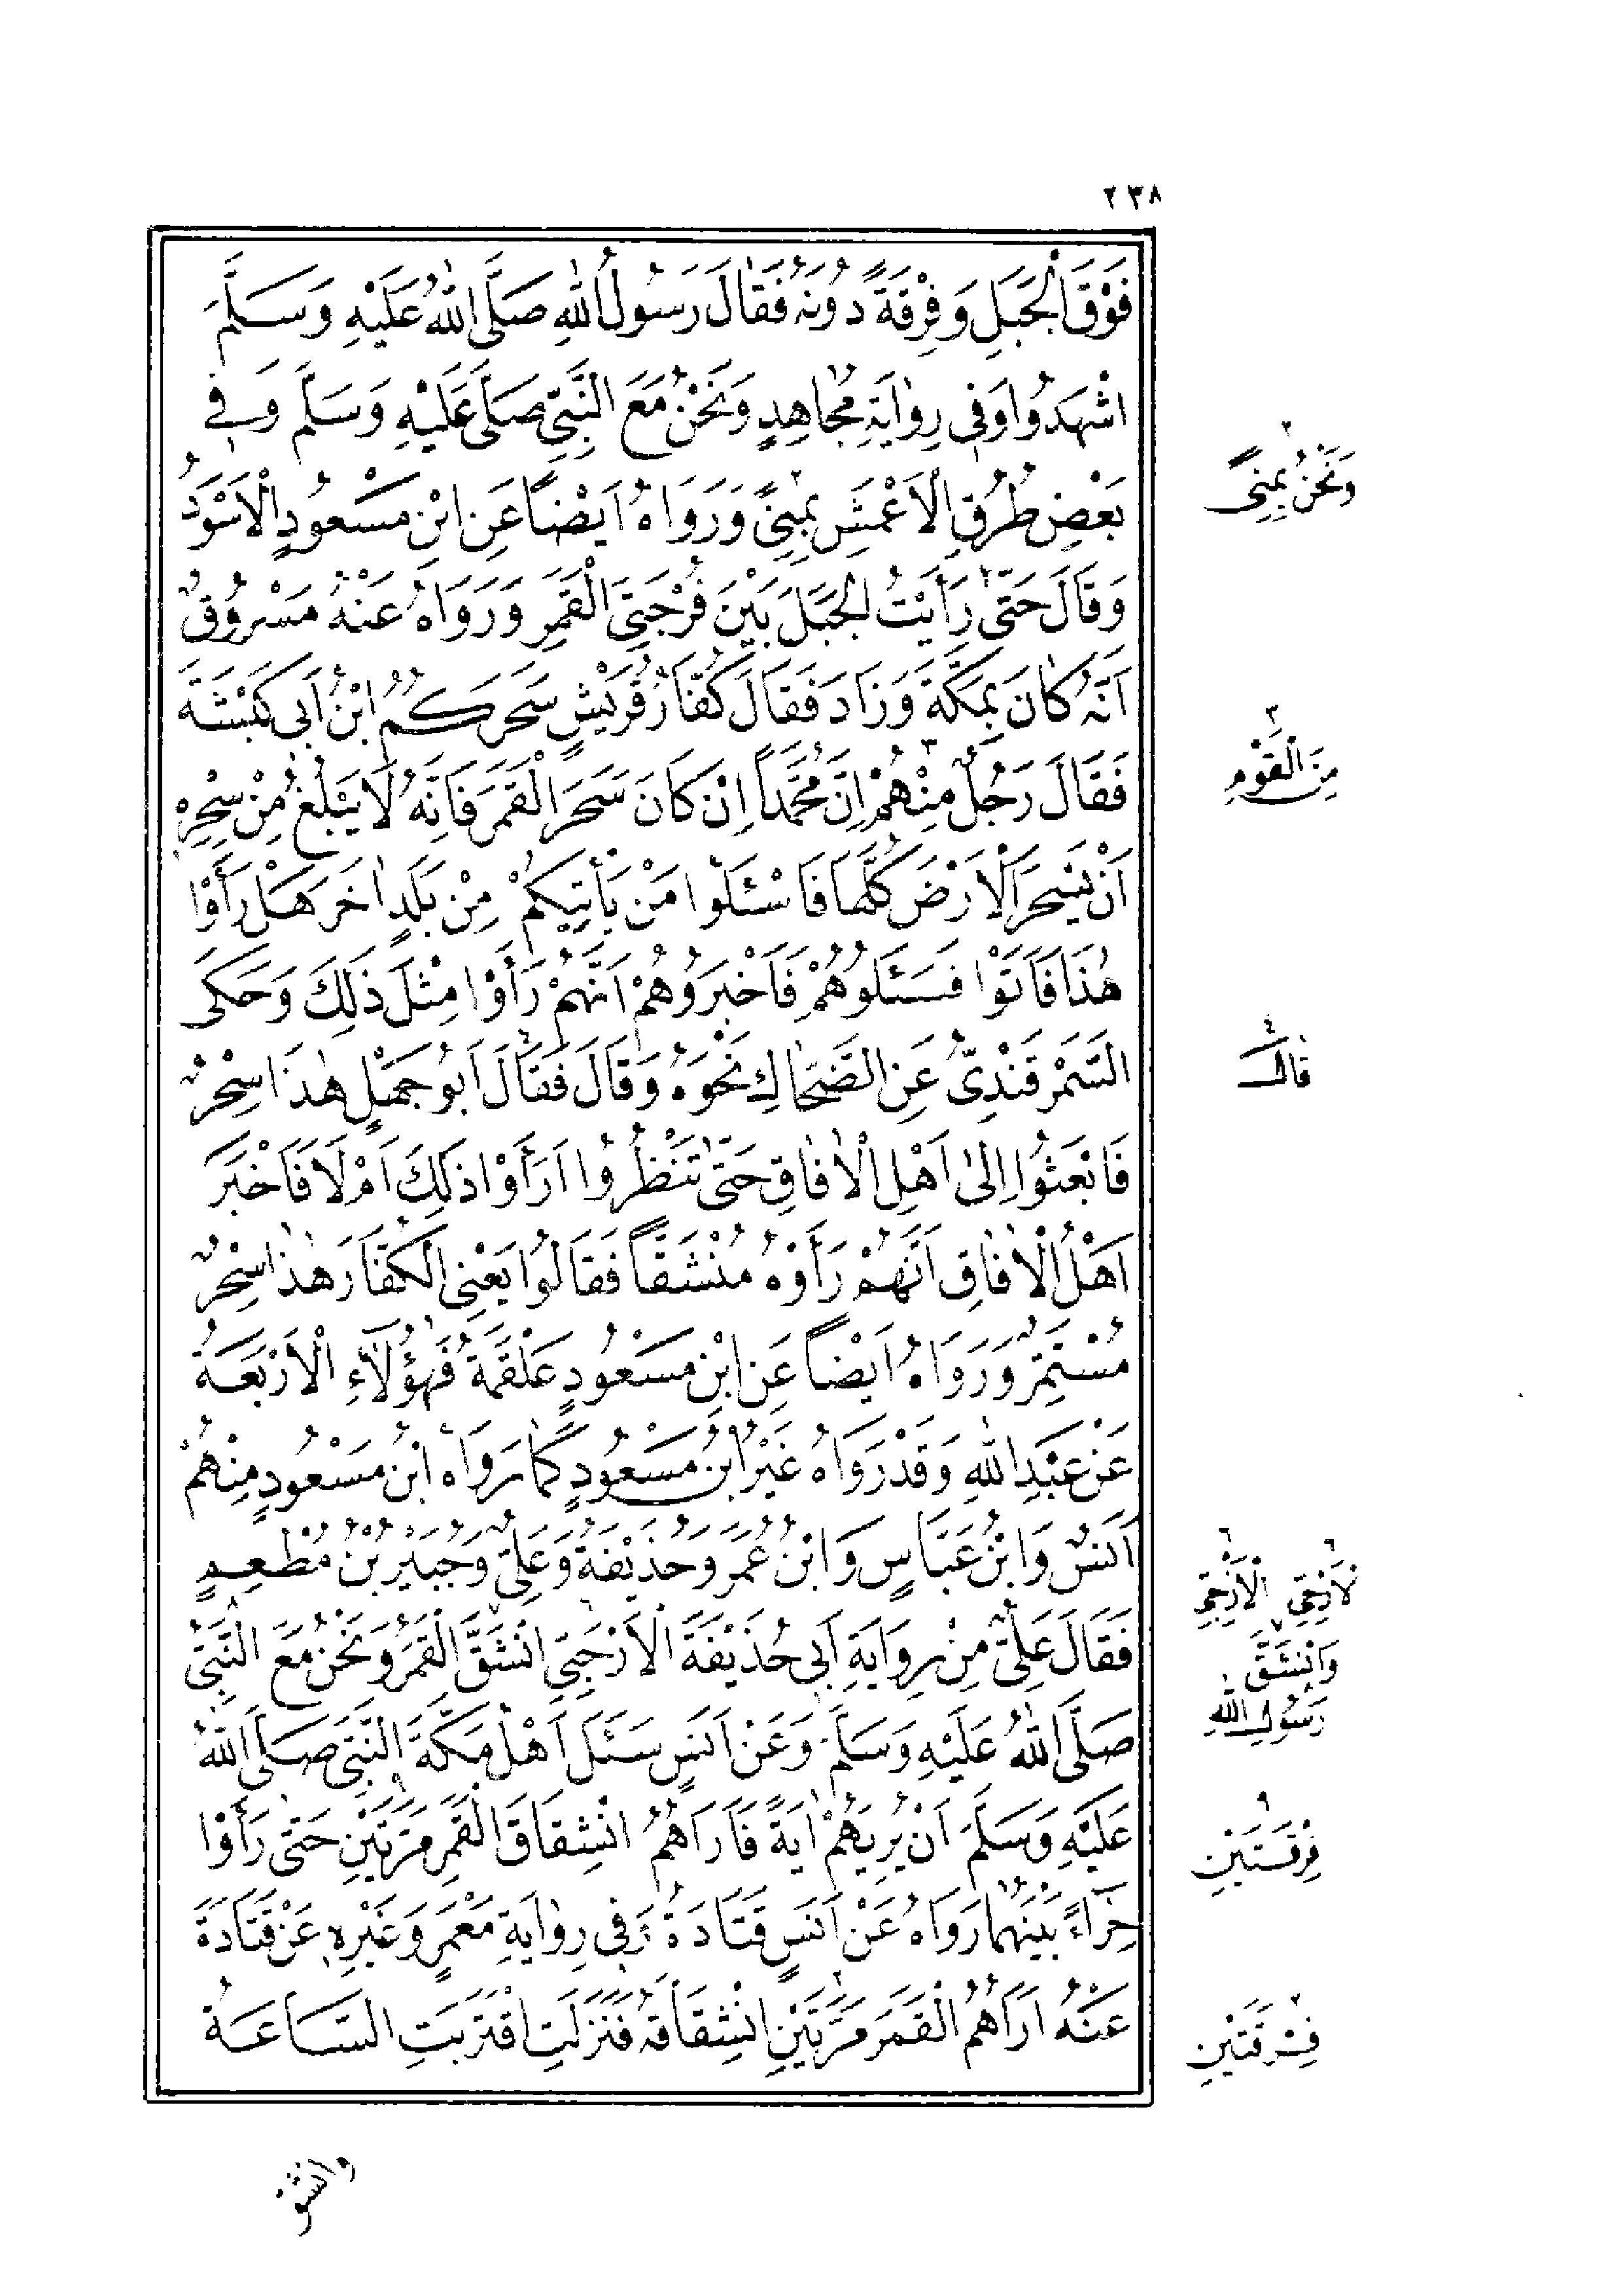 ٢٣٨
فَوْقَ الْجَبَلِ وَفِرْقَةً دُونَهُ فَقَالَ رَسُولُ اللهِ صَلَّى اللهُ عَلَيْهِ وَسَلَّمَ
اشْهَدُوا وَفِي رِوَايَةِ مُجَاهِدٍ وَنَحْنُ مَعَ النَّبِيِّ صَلَّى عَلَيْهِ وَسَلَّمَ وَفِي
بَعْضِ طُرُقِ الْاَعْمَشِ بِمِنًى وَرَوَاهُ اَيْضًا عَنِ ابْنِ مَسْعُودٍ الْاَسْوَدُ
وَقَالَ حَتَّى رَاَيْتُ الْجَبَلَ بَيْنَ فُرْجَتَيِ الْقَمَرِ وَرَوَاهُ عَنْهُ مَسْرُوقٌ
اَنَّهُ كَانَ بِمَكَّةَ وَزَادَ فَقَالَ كُفَّارُ قُرَيْشٍ سَحَرَكُمُ ابْنُ اَبِي كَبْشَةَ
فَقَالَ رَجُلٌ مِنْهُمْ اِنَّ مُحَمَّداً اِنْ كَانَ سَحَرَ الْقَمَرَ فَاِنَّهُ لَا يَبْلُغُ مِنْ سِحْرِهِ
اَنْ يَسْحَرَ الْاَرْضَ كُلَّهَا فَاسْئَلُوا مَنْ يَأْتِيكُمْ مِنْ بَلَدٍ اٰخَرَ هَلْ رَأَوْا
هٰذَا فَاَتَوْا فَسَئَلُوهُمْ فَاَخْبَرُوهُمْ اَنَّهُمْ رَأَوْا مِثْلَ ذٰلِكَ وَحَكَى
السَّمَرْقَنْدِيُّ عَنِ الضَّحَّاكِ نَحْوَهُ وَقَالَ فَقَالَ اَبُو جَهْلٍ هٰذَا سِحْرٌ
فَابْعَثُوا اِلَى اَهْلِ الْاٰفَاقِ حَتَّى تَنْظُرُوا اَرَأَوْا ذٰلِكَ اَمْ لَا فَاَخْبَرَ
اَهْلُ الْاٰفَاقِ اَنَّهُمْ رَأَوْهُ مُنْشَقًّا فَقَالُوا يَعْنِي الْكُفَّارَ هٰذَا سِحْرٌ
مُسْتَمِرٌّ وَرَوَاهُ اَيْضاً عَنِ ابْنِ مَسْعُودٍ عَلْقَمَةُ فَهٰؤُلَاءِ الْاَرْبَعَةُ
عَنْ عَبْدِ اللهِ وَقَدْ رَوَاهُ غَيْرُ ابْنِ مَسْعُودٍ كَمَا رَوَاهُ ابْنُ مَسْعُودٍ مِنْهُمْ
اَنَسٌ وَابْنُ عَبَّاسٍ وَابْنُ عُمَرَ وَحُذَيْفَةُ وَعَلِيٌّ وَجُبَيْرُ بْنُ مُطْعِمٍ
فَقَالَ عَلِيٌّ مِنْ رِوَايَةِ اَبِي حُذَيْفَةَ الْاَرْحَبِيِّ انْشَقَّ الْقَمَرُ وَنَحْنُ مَعَ النَّبِيِّ
صَلَّى اللهُ عَلَيْهِ وَسَلَّمَ وَعَنْ اَنَسٍ سَئَلَ اَهْلُ مَكَّةَ النَّبِيَّ صَلَّى اللهُ
عَلَيْهِ وَسَلَّمَ اَنْ يُرِيَهُمْ اٰيَةً فَاَرَاهُمُ انْشِقَاقَ الْقَمَرِ مَرَّتَيْنِ حَتَّى رَأَوْا
حِرَاءً بَيْنَهُمَا رَوَاهُ عَنْ اَنَسٍ قَتَادَةُ وَفِي رِوَايَةِ مَعْمَرٍ وَغَيْرِهِ عَنْ قَتَادَةَ
عَنْهُ اَرَاهُمُ الْقَمَرَ مَرَّتَيْنِ انْشِقَاقَهُ فَنَزَلَتِ اقْتَرَبَتِ السَّاعَةُ
٢
وَنَحْنُ بِمِنًى
٣
مِنَ الْقَوْمِ
٤
قَالَ
٦ ٦
الْاَرْحَبِيِّ
٧
وَانْشَقَّ
رَسُولِ اللهِ
٩
فِرْقَتَيْنِ
٢
فِرْقَتَيْنِ
وانشق